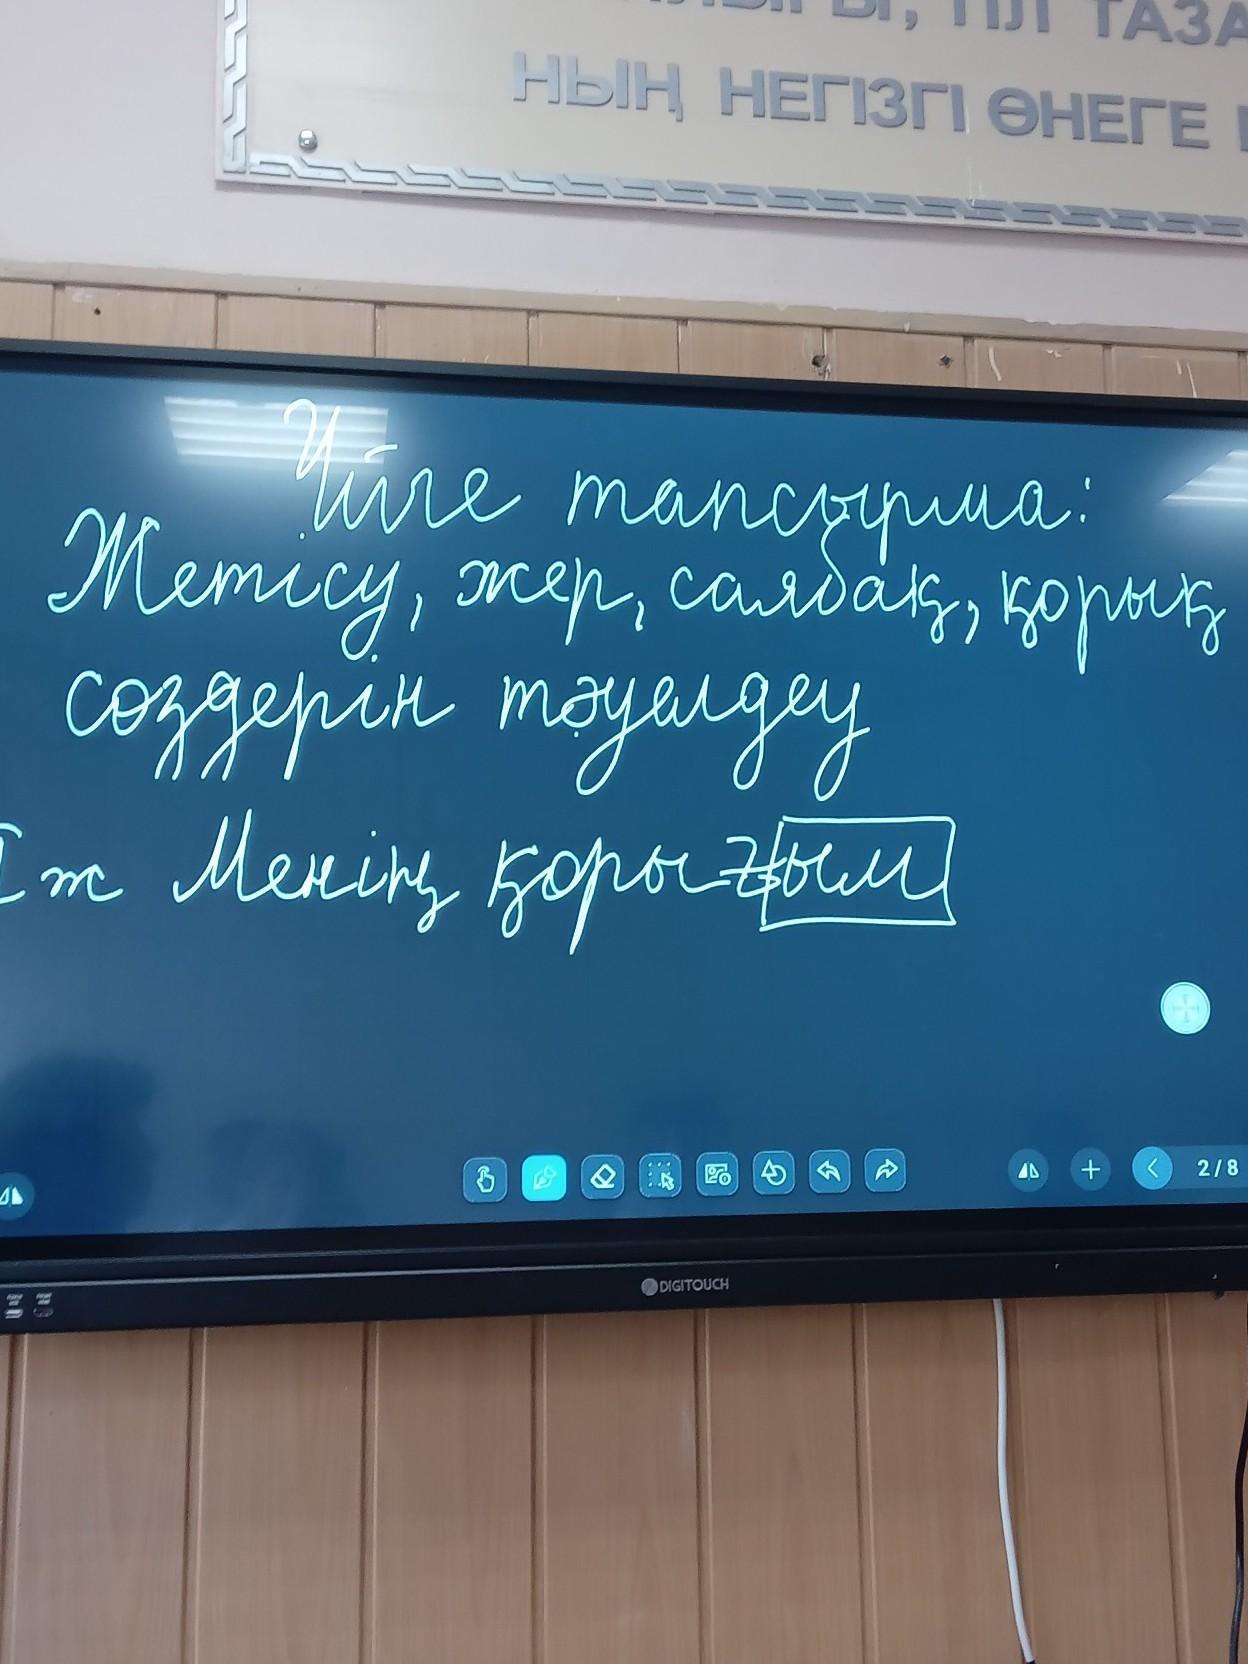 ТІЛ ТАЗА
НЫҢ НЕГІЗГІ ӨНЕГЕ
Үйге тапсырма:
Жетісу, жер, саябақ, қорық
сөздерін тәуелдеу
І ж Менің қорығым
2/8
DIGITOUCH